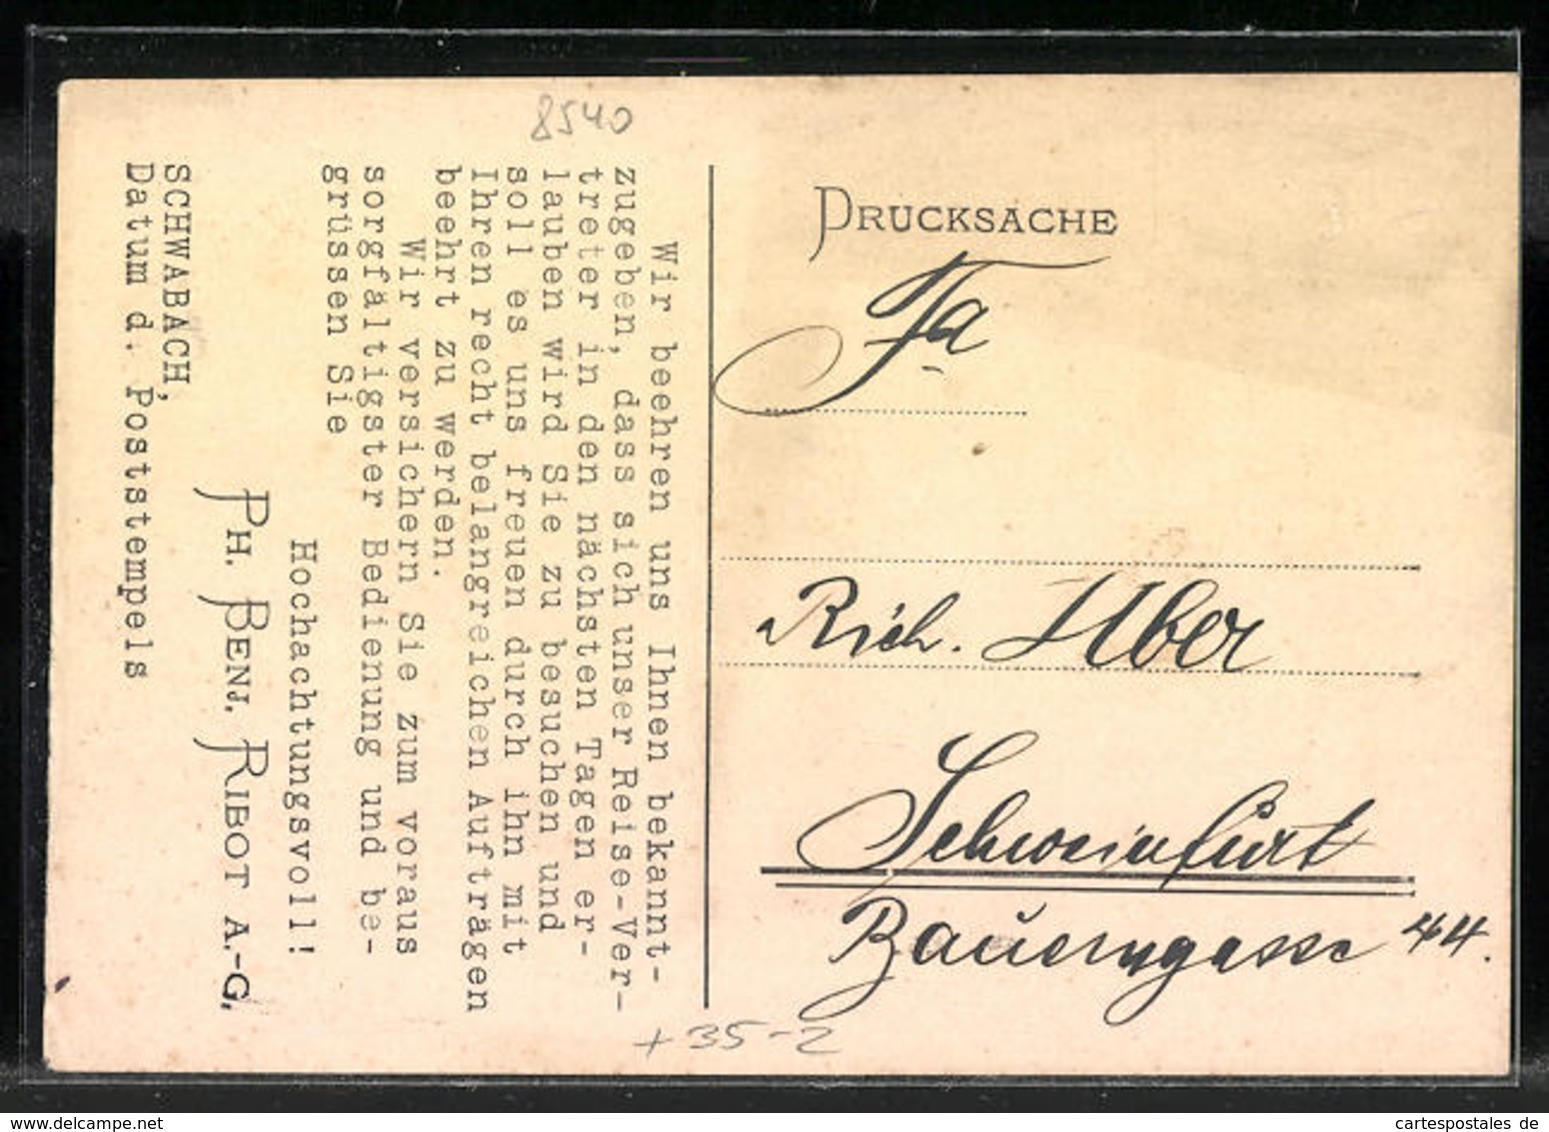 8540
Wir beehren uns Ihnen bekannt-
zugeben, dass sich unser Reise-Ver-
treter in den nächsten Tagen er-
lauben wird Sie zu besuchen und
soll es uns freuen durch ihn mit
Ihren recht belangreichen Aufträgen
beehrt zu werden.
Wir versichern Sie zum voraus
sorgfältigster Bedienung und be-
grüssen Sie
Hochachtungsvoll!
PH. BENJ. RIBOT A.-G.
SCHWABACH,
Datum d. Poststempels
DRUCKSACHE
Fa
Rich. Uber
Schweinfurt
Bauerngasse 44.
+ 35-2
www.delcampe.net
cartespostales de